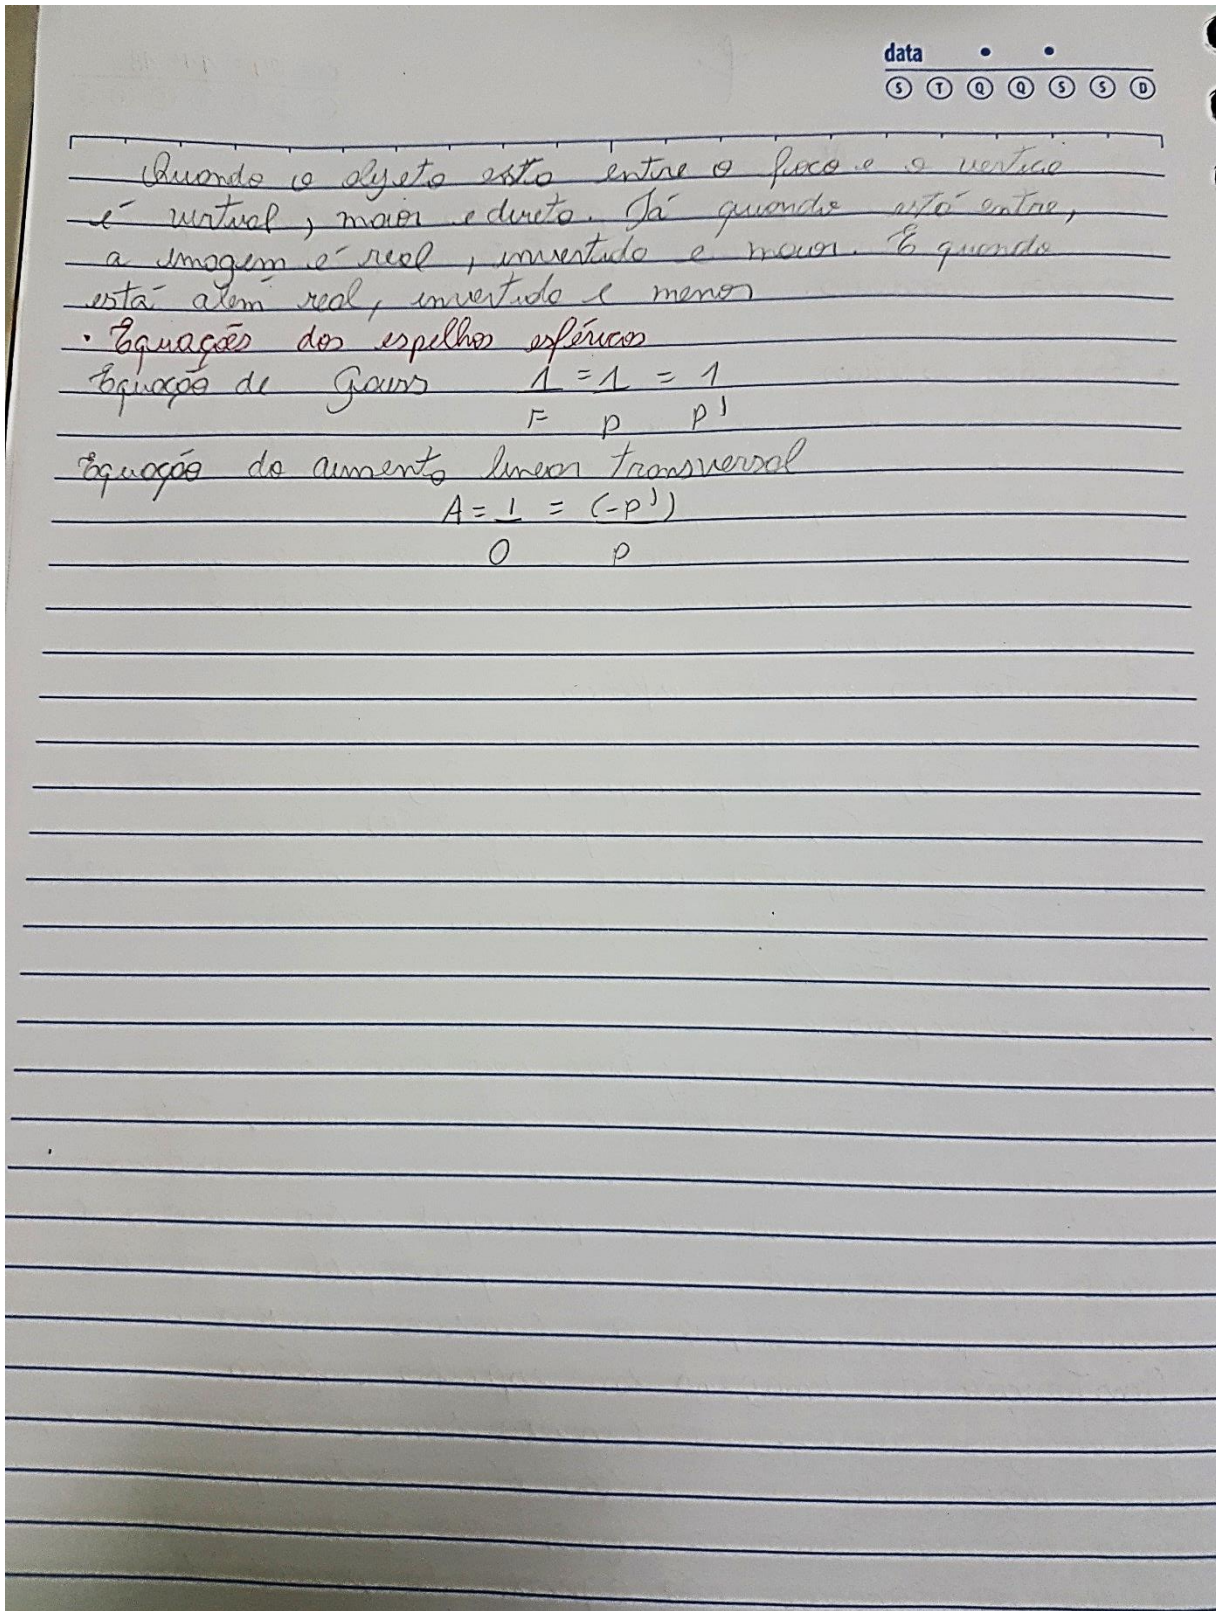 data
S T Q Q S S D
Quando o objeto está entre o foco e o vertice
é virtual, maior e direto. Já quando está entre,
a imagem é real, invertido e maior. E quando
está além real, invertido e menor
• Equações dos espelhos esféricos
Equação de Gauss 1 = 1 = 1
F p p'
Equação do aumento linear transversal
A = I = (-p')
O p